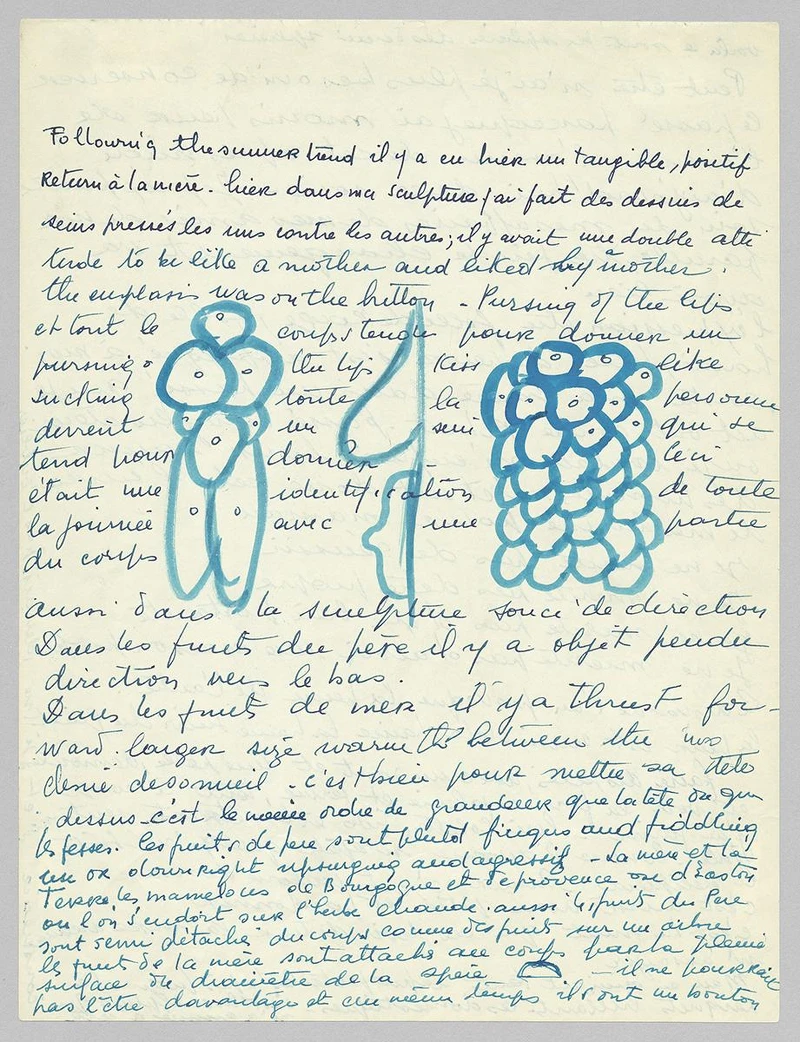 Following the summer trend il y a eu hier un tangible, positif
Return à la mère. hier dans ma sculpture j'ai fait des dessins de
seins pressés les uns contre les autres; il y avait une double atti
tude to be like a mother and liked by mother.
the emphasis was on the button - Pursing of the lips
et tout le corps tendu pour donner un
pursing the lips kiss like
sucking toute la personne
devient un sein qui se
tend pour donner - Ceci
était une identification de toute
la journée avec une partie
du corps
aussi dans la sculpture souci de direction
Dans les fruits du père il y a objet pendu
direction vers le bas.
Dans les fruits de mer il y a thrust for-
ward. larger size warmth between the
de sommeil - c'est bien pour mettre sa tete
dessus - c'est le meme ordre de grandeur que la tête ou que
les fesses. les fruits de pere sont plutot fingers and fiddling
or downright upsurging and agressif - La mère et la
Terre, les mamelons de Bourgogne et de provence ou d'Easton
ou l'on s'endort sur l'herbe chaude. aussi les fruits du Pere
sont semi détachés du corps comme des fruits sur un arbre
les fruits de la mère sont attachés au corps par la pleine
surface du diamètre de la - il ne pourrait
pas l'être davantage et en même temps ils ont un bouton